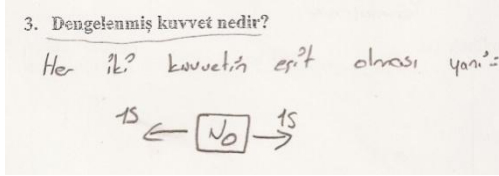 3. Dengelenmiş kuvvet nedir?
Her iki kuvvetin eşit olması yani =
15 15
NO